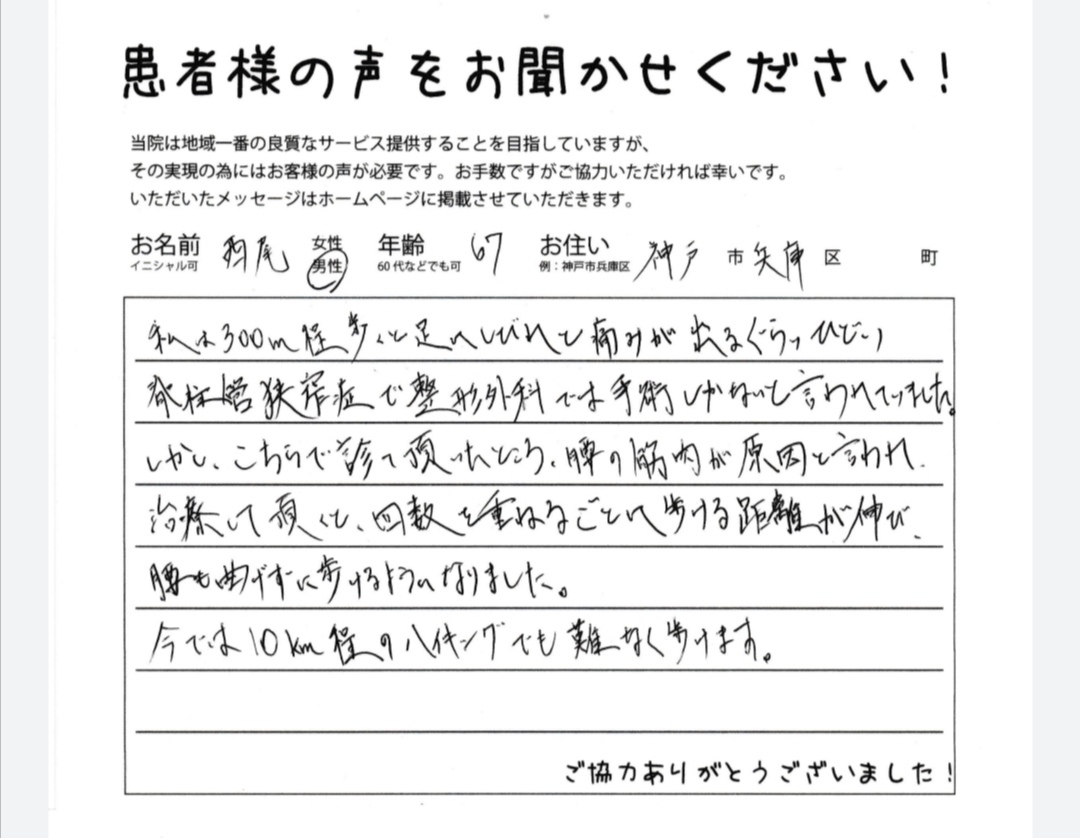 患者様の声をお聞かせください！
当院は地域一番の良質なサービス提供することを目指していますが、
その実現の為にはお客様の声が必要です。お手数ですがご協力いただければ幸いです。
いただいたメッセージはホームページに掲載させていただきます。
お名前 西尾 女性 年齢 67 お住い 神戸 市 兵庫 区 町
イニシャル可 男性 60代などでも可 例：神戸市兵庫区
私は300m程歩くと足にしびれと痛みが出るぐらいひどい
脊柱管狭窄症で整形外科では手術しかないと言われていました。
しかし、こちらで診て頂いたところ、腰の筋肉が原因と言われ、
治療して頂くと、回数を重ねるごとに歩ける距離が伸び、
腰も曲げずに歩けるようになりました。
今では10km程のハイキングでも難なく歩けます。
ご協力ありがとうございました！